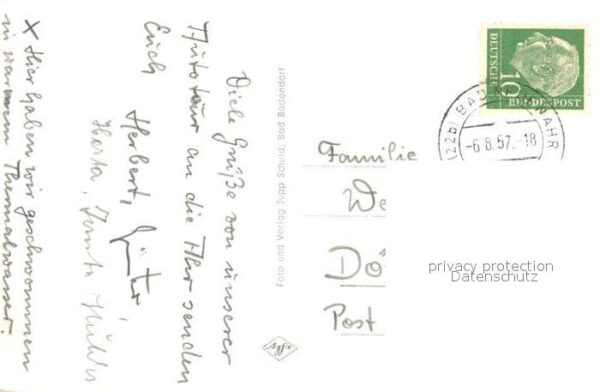 Viele Grüße von unserer
Autotour an die Ahr senden
Euch
Herbert, Günter,
Herta, Tante
X Hier haben wir geschwommen
in warmem Thermalwasser.
Foto und Verlag Jupp Bad Bodendorf
Familie
We
Dö
Post
privacy protection
Datenschutz
10
DEUTSCHE
BUNDESPOST
(22b) BAD AHR
-6.8.57.-18